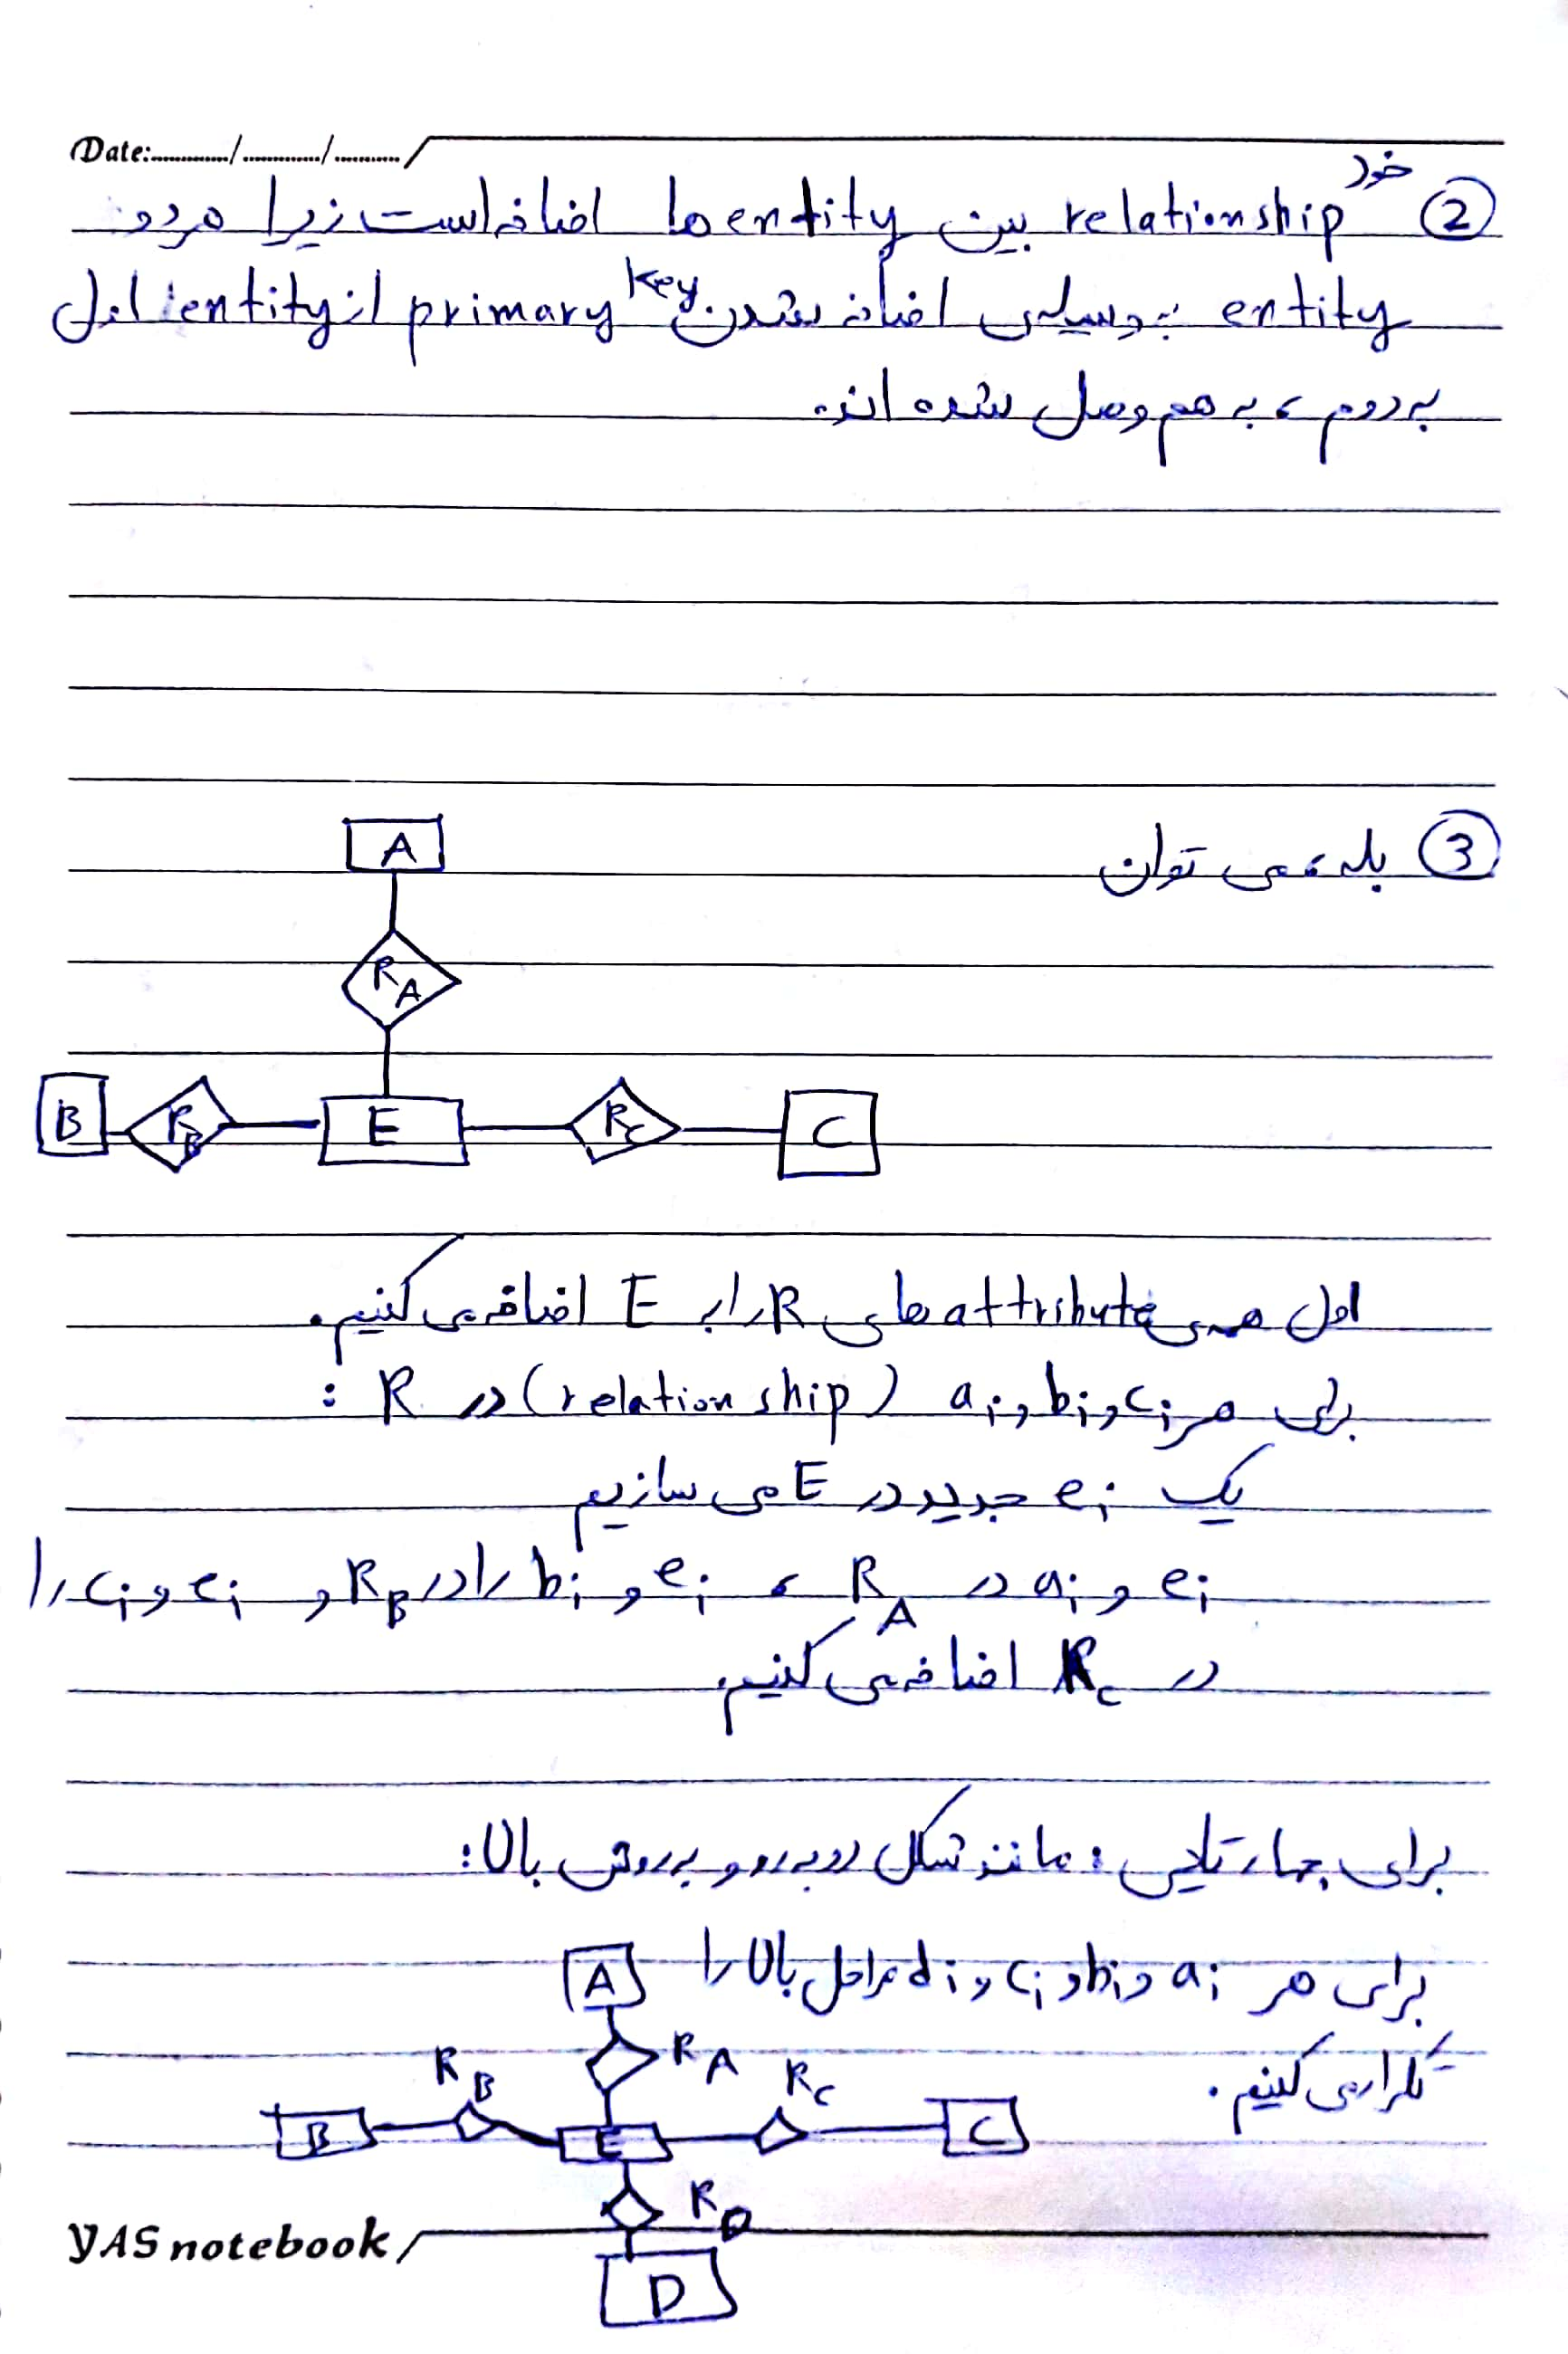 Date:........../........../........../
② خود relationship بین entity ها اضافه است زیرا هر دو
entity به وسیله‌ی اضافه شدن primary key از entity اول
به دوم، به هم وصل شده اند.
③ بله، می توان
A
R_A
B R_B E R_C C
اول همه‌ی attribute های R را به E اضافه می کنیم.
برای هر a_i و b_i و c_i (relationship) در R :
یک e_i جدید در E می سازیم
e_i و a_i در R_A ، e_i و b_i را در R_B و e_i و c_i را
در R_C اضافه می کنیم.
برای چهارتایی : مانند شکل روبه رو و به روش بالا :
برای هر a_i و b_i و c_i و d_i مراحل بالا را
تکرار می کنیم.
A
R_B R_A R_C
B E C
R_D
YAS notebook
D